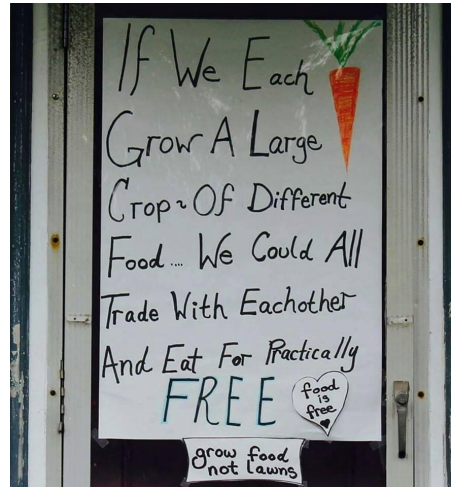 If We Each
Grow A Large
Crop~Of Different
Food.... We Could All
Trade With Eachother
And Eat For Practically
FREE
food
is
free
grow food
not lawns